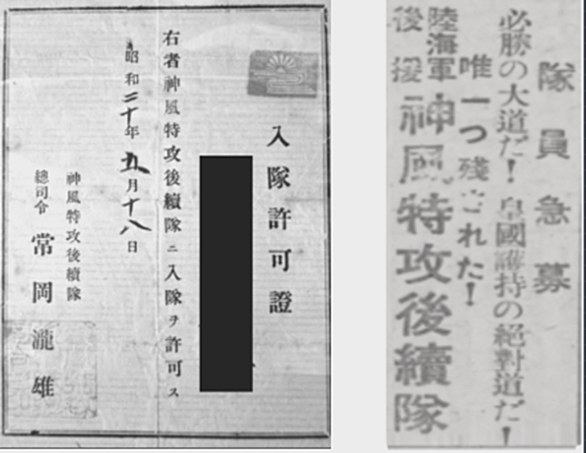 入隊許可證
右者神風特攻後續隊ニ入隊ヲ許可ス
昭和二十年五月十八日
神風特攻後續隊
總司令 常岡瀧雄
隊員急募
必勝の大道だ！皇國護持の絕對道だ！
唯一つ残された！
陸海軍後援
神風特攻後續隊